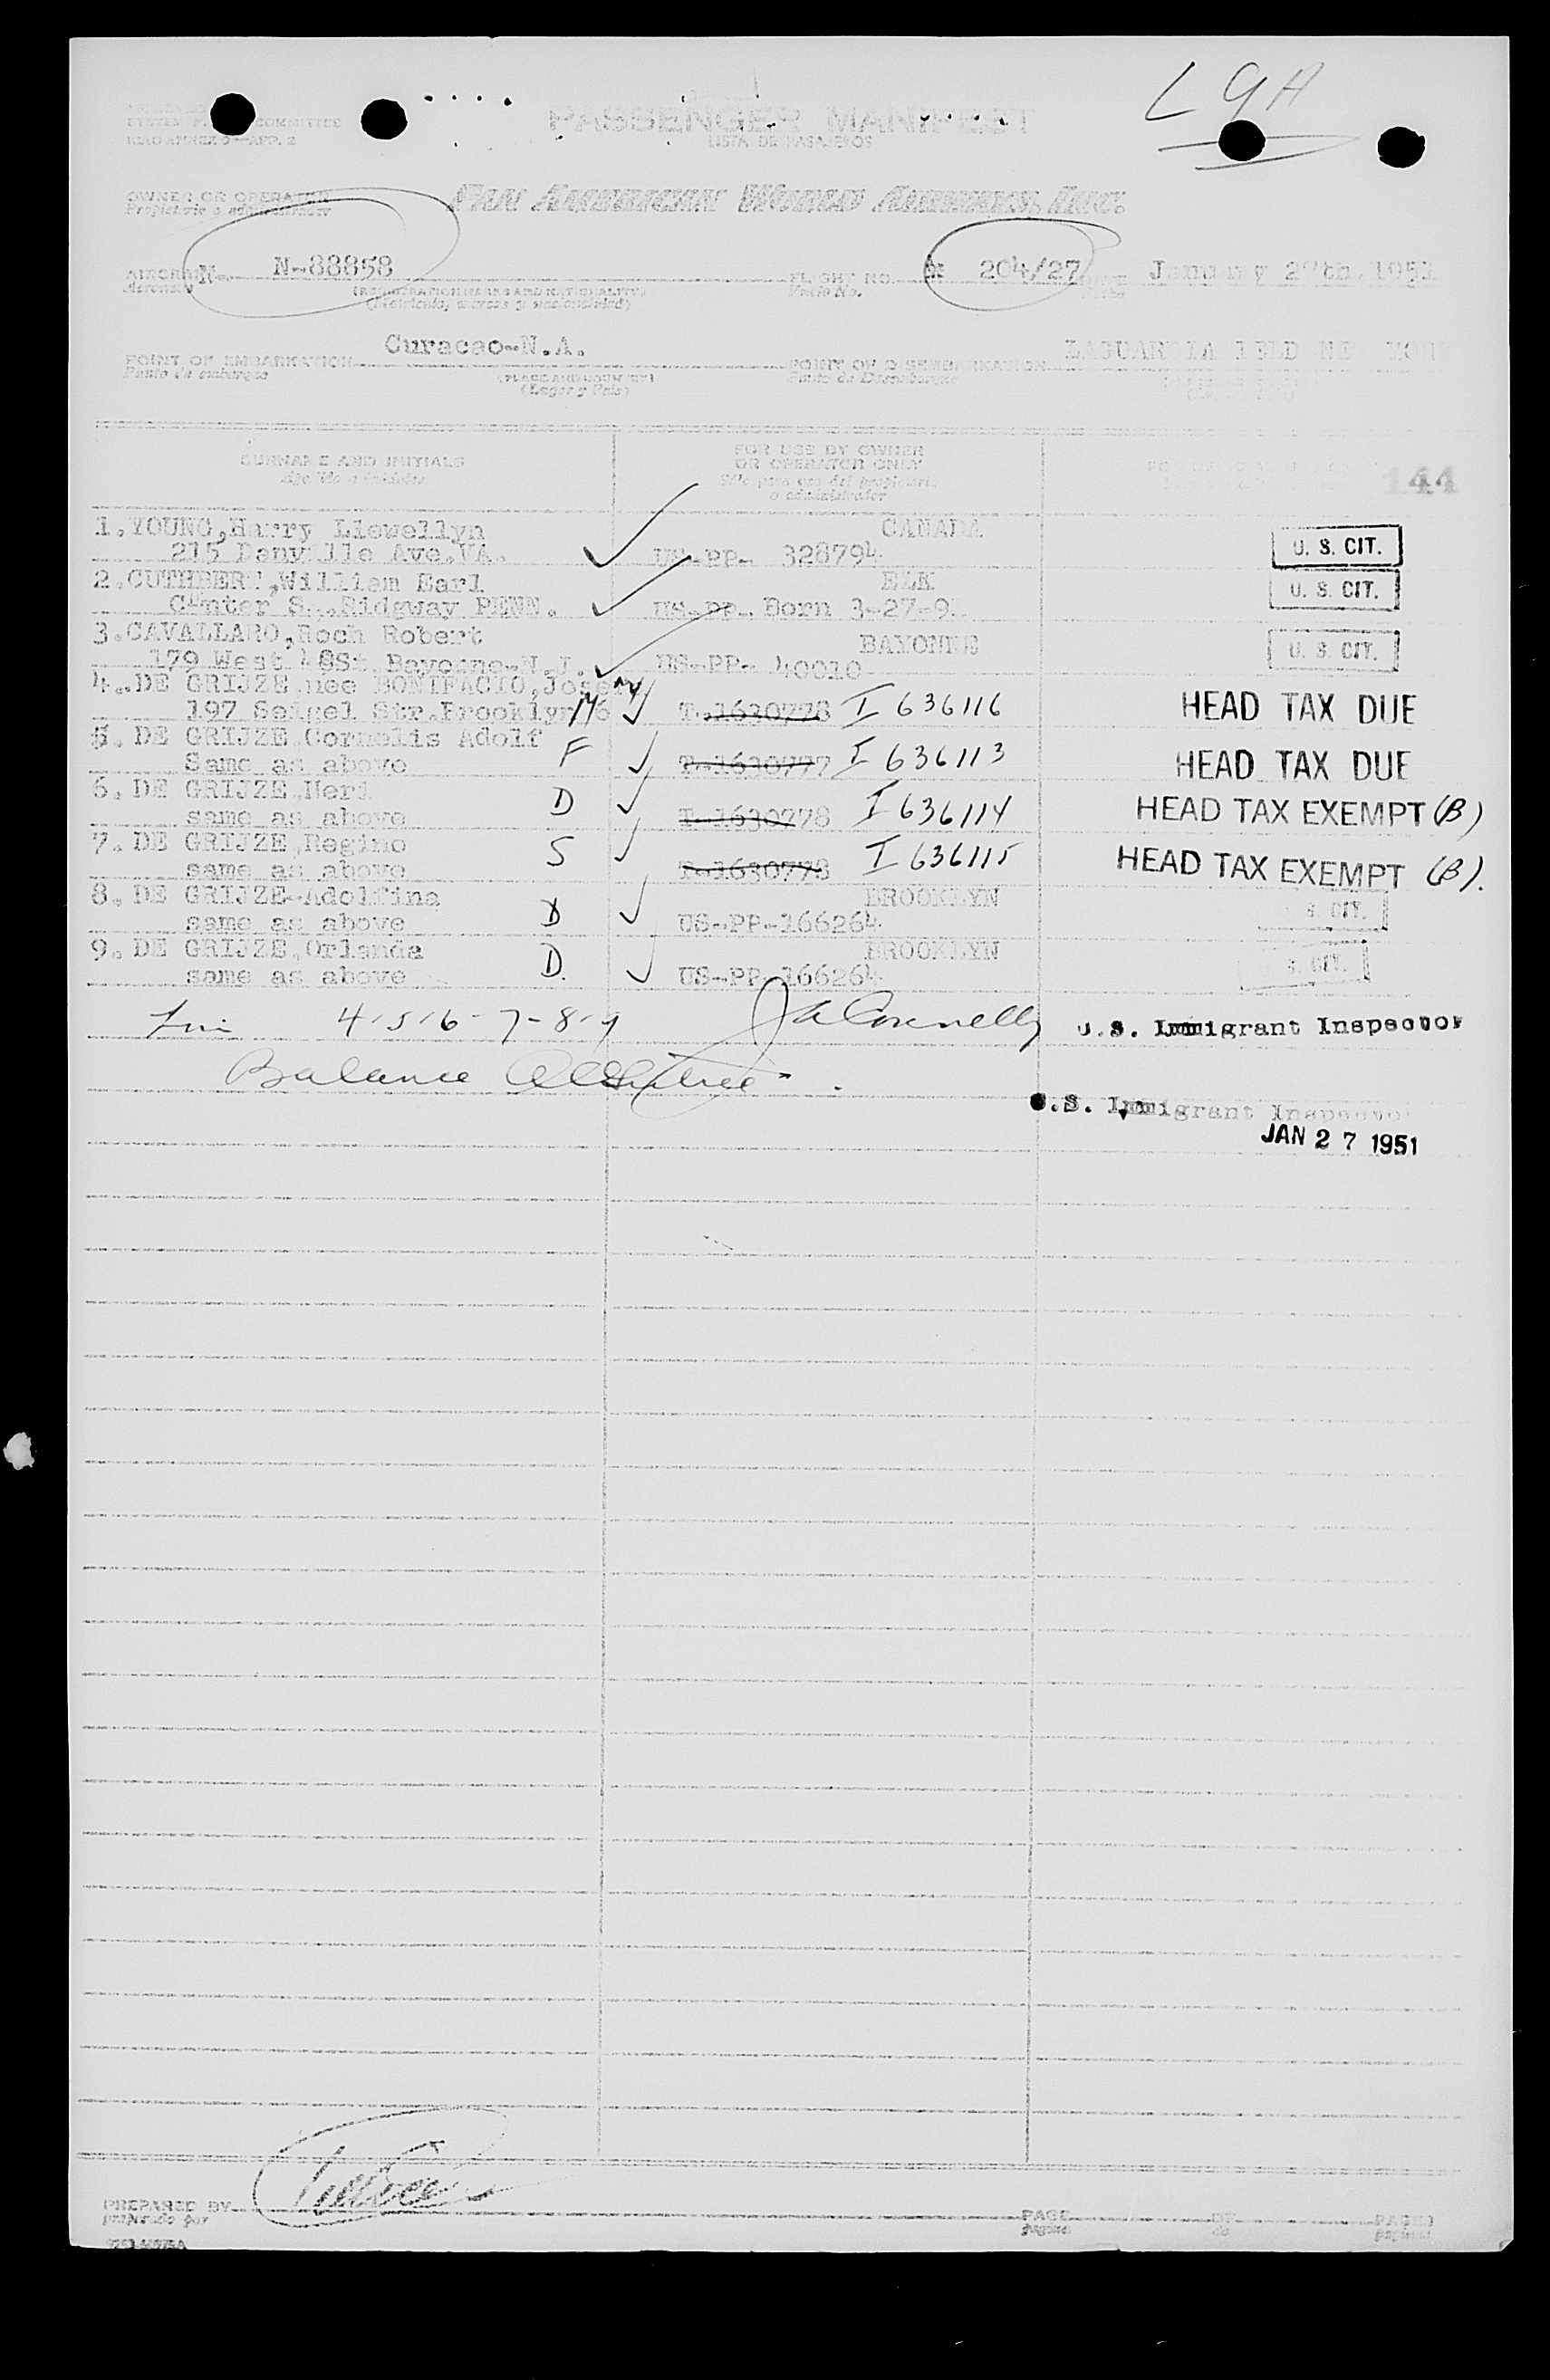 LGA
PASSENGER MANIFEST
LISTA DE PASAJEROS
COMMITTEE
APP. 2
OWNER OR OPERATOR
Propietario o administrador
PAN AMERICAN WORLD AIRWAYS, INC.
AIRCRAFT N N-88858 FLIGHT NO. 204/27 January 27th. 1951
Aeronave Vuelo No.
(REGISTRATION MARKS AND NATIONALITY)
(Matricula, marcas y nacionalidad)
POINT OF EMBARKATION Curacao-N.A. POINT OF DISEMBARKATION LAGUARDIA
Punto de embarque (PLACE AND COUNTRY) Punto de Desembarque
(Lugar y Pais)
SURNAME AND INITIALS FOR USE BY OWNER OR OPERATOR ONLY 144
Apellido e iniciales Sólo para uso del propietario o administrador
1. YOUNG, Harry Llewellyn CANADA
215 Danville Ave. VA. US-PP- 328794 U. S. CIT.
2. CUTHBERT, William Earl ELK
Center S. Ridgway PENN. US-PP- Born 3-27-9 U. S. CIT.
3. CAVALLARO, Roch Robert BAYONNE
179 West 48St. Bayonne-N.J. US-PP- 40010 U. S. CIT.
4. DE GRIJZE nee BONIFACIO, Josefa M
197 Seigel Str. Brooklyn 6 T-1630778 I 636116 HEAD TAX DUE
5. DE GRIJZE, Cornelis Adolf F
Same as above T-1630777 I 636113 HEAD TAX DUE
6. DE GRIJZE, Neri D
same as above T-1630778 I 636114 HEAD TAX EXEMPT (B)
7. DE GRIJZE, Regino S
same as above T-1630778 I 636115 HEAD TAX EXEMPT (B).
8. DE GRIJZE-Adolfina BROOKLYN
same as above D US-PP-166264 S. CIT.
9. DE GRIJZE, Orlanda BROOKLYN
same as above D. US-PP-166264 U. S. CIT.
4-5-6-7-8-9 J A Connelly U.S. Immigrant Inspector
Balance
U.S. Immigrant Inspector
JAN 27 1951
PREPARED BY PAGE OF PAGES
preparado por pagina de paginas